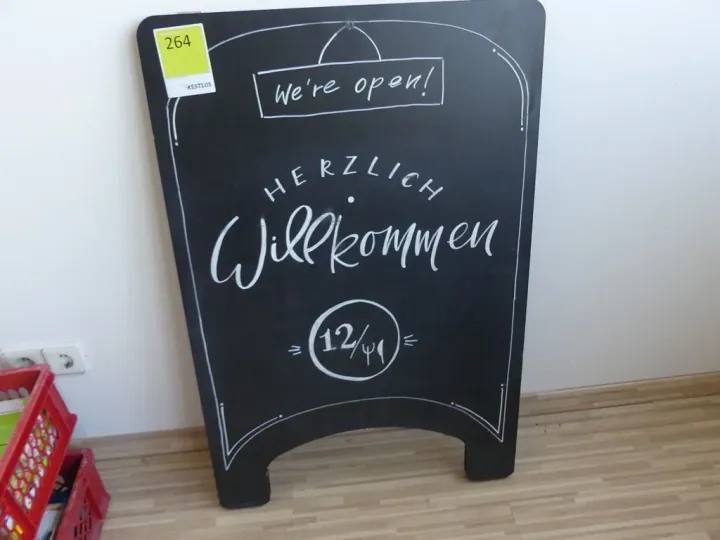 264
RESTLOS
We're open!
HERZLICH
Willkommen
12/